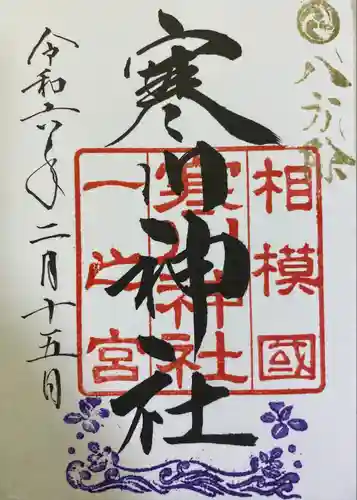 八方除
相模國
寒川神社
一之宮
寒川神社
令和六年二月十五日